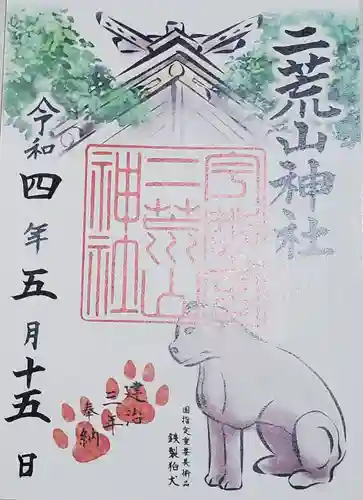 二荒山神社
宇都宮
二荒山
神社
令和四年五月十五日
建治
三年
奉納
国指定重要美術品
鉄製狛犬